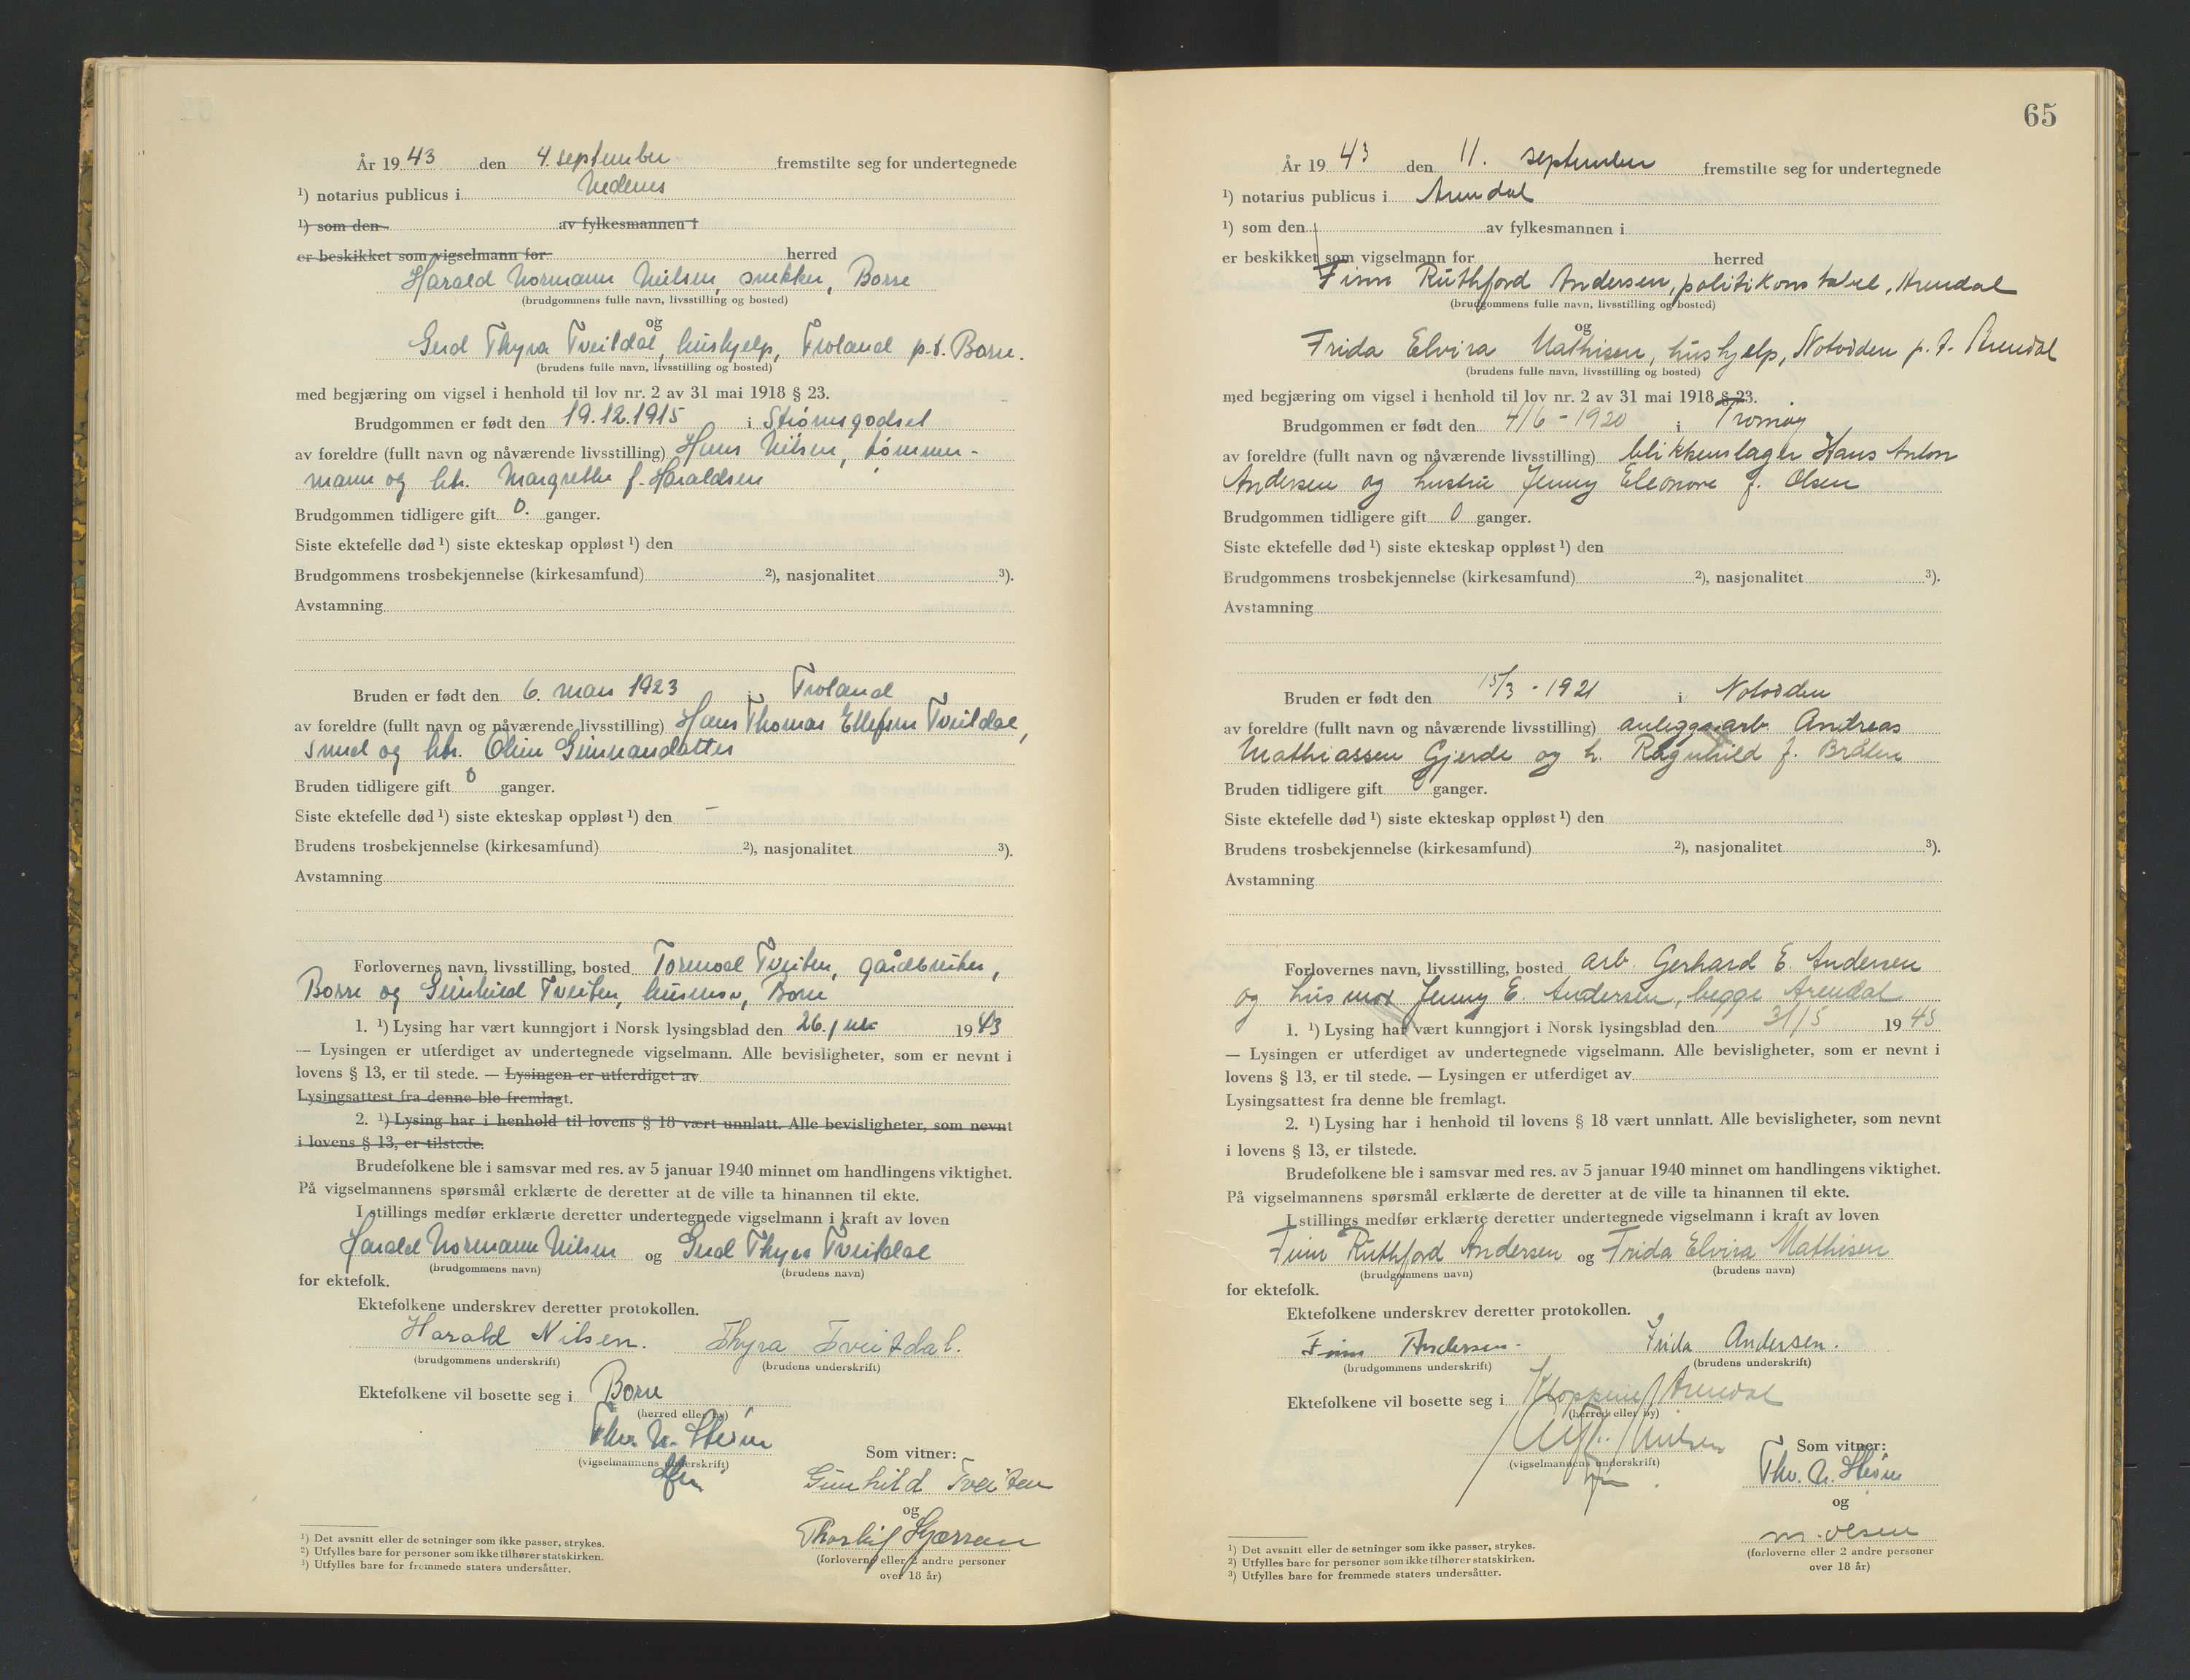 År 19 43 den 4. september fremstilte seg for undertegnede
¹) notarius publicus i Nedenes
¹) som den av fylkesmannen i
er beskikket som vigselmann for herred
Harald Normann Nilsen, snekker, Borre
(brudgommens fulle navn, livsstilling og bosted)
og
Gerd Thyra Tveitdal, hushjelp, Froland p.t. Borre.
(brudens fulle navn, livsstilling og bosted)
med begjæring om vigsel i henhold til lov nr. 2 av 31 mai 1918 § 23.
Brudgommen er født den 19.12.1915 i Strømsgodset
av foreldre (fullt navn og nåværende livsstilling) Hans Nilsen, tømmer-
mann og htr. Margrethe f. Haraldsen
Brudgommen tidligere gift 0. ganger.
Siste ektefelle død ¹) siste ekteskap oppløst ¹) den
Brudgommens trosbekjennelse (kirkesamfund) ²), nasjonalitet ³).
Avstamning
Bruden er født den 6. mars 1923 i Froland
av foreldre (fullt navn og nåværende livsstilling) Hans Thomas Ellefsen Tveitdal,
smed og htr. Oline Gunnarsdatter
Bruden tidligere gift 0 ganger.
Siste ektefelle død ¹) siste ekteskap oppløst ¹) den –
Brudens trosbekjennelse (kirkesamfund) ²), nasjonalitet ³).
Avstamning
Forlovernes navn, livsstilling, bosted Tormod Tveiten, gårdbruker,
Borre og Gunhild Tveiten, husmor, Borre
1. ¹) Lysing har vært kunngjort i Norsk lysingsblad den 26. juli 19 43
— Lysingen er utferdiget av undertegnede vigselmann. Alle bevisligheter, som er nevnt i
lovens § 13, er til stede. — Lysingen er utferdiget av
Lysingsattest fra denne ble fremlagt.
2. ¹) Lysing har i henhold til lovens § 18 vært unnlatt. Alle bevisligheter, som nevnt
i lovens § 13, er tilstede.
Brudefolkene ble i samsvar med res. av 5 januar 1940 minnet om handlingens viktighet.
På vigselmannens spørsmål erklærte de deretter at de ville ta hinannen til ekte.
I stillings medfør erklærte deretter undertegnede vigselmann i kraft av loven
Harald Normann Nilsen og Gerd Thyra Tveitdal
(brudgommens navn) (brudens navn)
for ektefolk.
Ektefolkene underskrev deretter protokollen.
Harald Nilsen. Thyra Tveitdal.
(brudgommens underskrift) (brudens underskrift)
Ektefolkene vil bosette seg i Borre
(herred eller by)
Thv. N. Strøm
(vigselmannens underskrift)
Som vitner:
Gunhild Tveiten
og
(forloverne eller 2 andre personer
over 18 år)
¹) Det avsnitt eller de setninger som ikke passer, strykes.
²) Utfylles bare for personer som ikke tilhører statskirken.
³) Utfylles bare for fremmede staters undersåtter.
65
År 19 43 den 11. september fremstilte seg for undertegnede
¹) notarius publicus i Arendal
¹) som den av fylkesmannen i
er beskikket som vigselmann for herred
Finn Ruthford Andersen, politikonstabel, Arendal
(brudgommens fulle navn, livsstilling og bosted)
og
Frida Elvira Mathisen, hushjelp, Notodden p.t. Arendal
(brudens fulle navn, livsstilling og bosted)
med begjæring om vigsel i henhold til lov nr. 2 av 31 mai 1918 § 23.
Brudgommen er født den 4/6 - 1920 i Tromøy
av foreldre (fullt navn og nåværende livsstilling) blikkenslager Hans Anton
Andersen og hustru Jenny Eleonore f. Olsen
Brudgommen tidligere gift 0 ganger.
Siste ektefelle død ¹) siste ekteskap oppløst ¹) den
Brudgommens trosbekjennelse (kirkesamfund) ²), nasjonalitet ³).
Avstamning
Bruden er født den 15/3 - 1921 i Notodden
av foreldre (fullt navn og nåværende livsstilling) anleggsarb. Andreas
Mathiassen Gjerde og h. Ragnhild f. Bråten
Bruden tidligere gift 0 ganger.
Siste ektefelle død ¹) siste ekteskap oppløst ¹) den
Brudens trosbekjennelse (kirkesamfund) ²), nasjonalitet ³).
Avstamning
Forlovernes navn, livsstilling, bosted arb. Gerhard E. Andersen
og husmor Jenny E. Andersen, begge Arendal
1. ¹) Lysing har vært kunngjort i Norsk lysingsblad den 31/5 19 43
— Lysingen er utferdiget av undertegnede vigselmann. Alle bevisligheter, som er nevnt i
lovens § 13, er til stede. — Lysingen er utferdiget av
Lysingsattest fra denne ble fremlagt.
2. ¹) Lysing har i henhold til lovens § 18 vært unnlatt. Alle bevisligheter, som nevnt
i lovens § 13, er tilstede.
Brudefolkene ble i samsvar med res. av 5 januar 1940 minnet om handlingens viktighet.
På vigselmannens spørsmål erklærte de deretter at de ville ta hinannen til ekte.
I stillings medfør erklærte deretter undertegnede vigselmann i kraft av loven
Finn Ruthford Andersen og Frida Elvira Mathisen
(brudgommens navn) (brudens navn)
for ektefolk.
Ektefolkene underskrev deretter protokollen.
Finn Andersen. Frida Andersen.
(brudgommens underskrift) (brudens underskrift)
Ektefolkene vil bosette seg i Kloppene, Arendal
(herred eller by)
Nilsen
(vigselmannens underskrift)
Som vitner:
Thv. N. Strøm
og
M. Olsen
(forloverne eller 2 andre personer
over 18 år)
¹) Det avsnitt eller de setninger som ikke passer, strykes.
²) Utfylles bare for personer som ikke tilhører statskirken.
³) Utfylles bare for fremmede staters undersåtter.